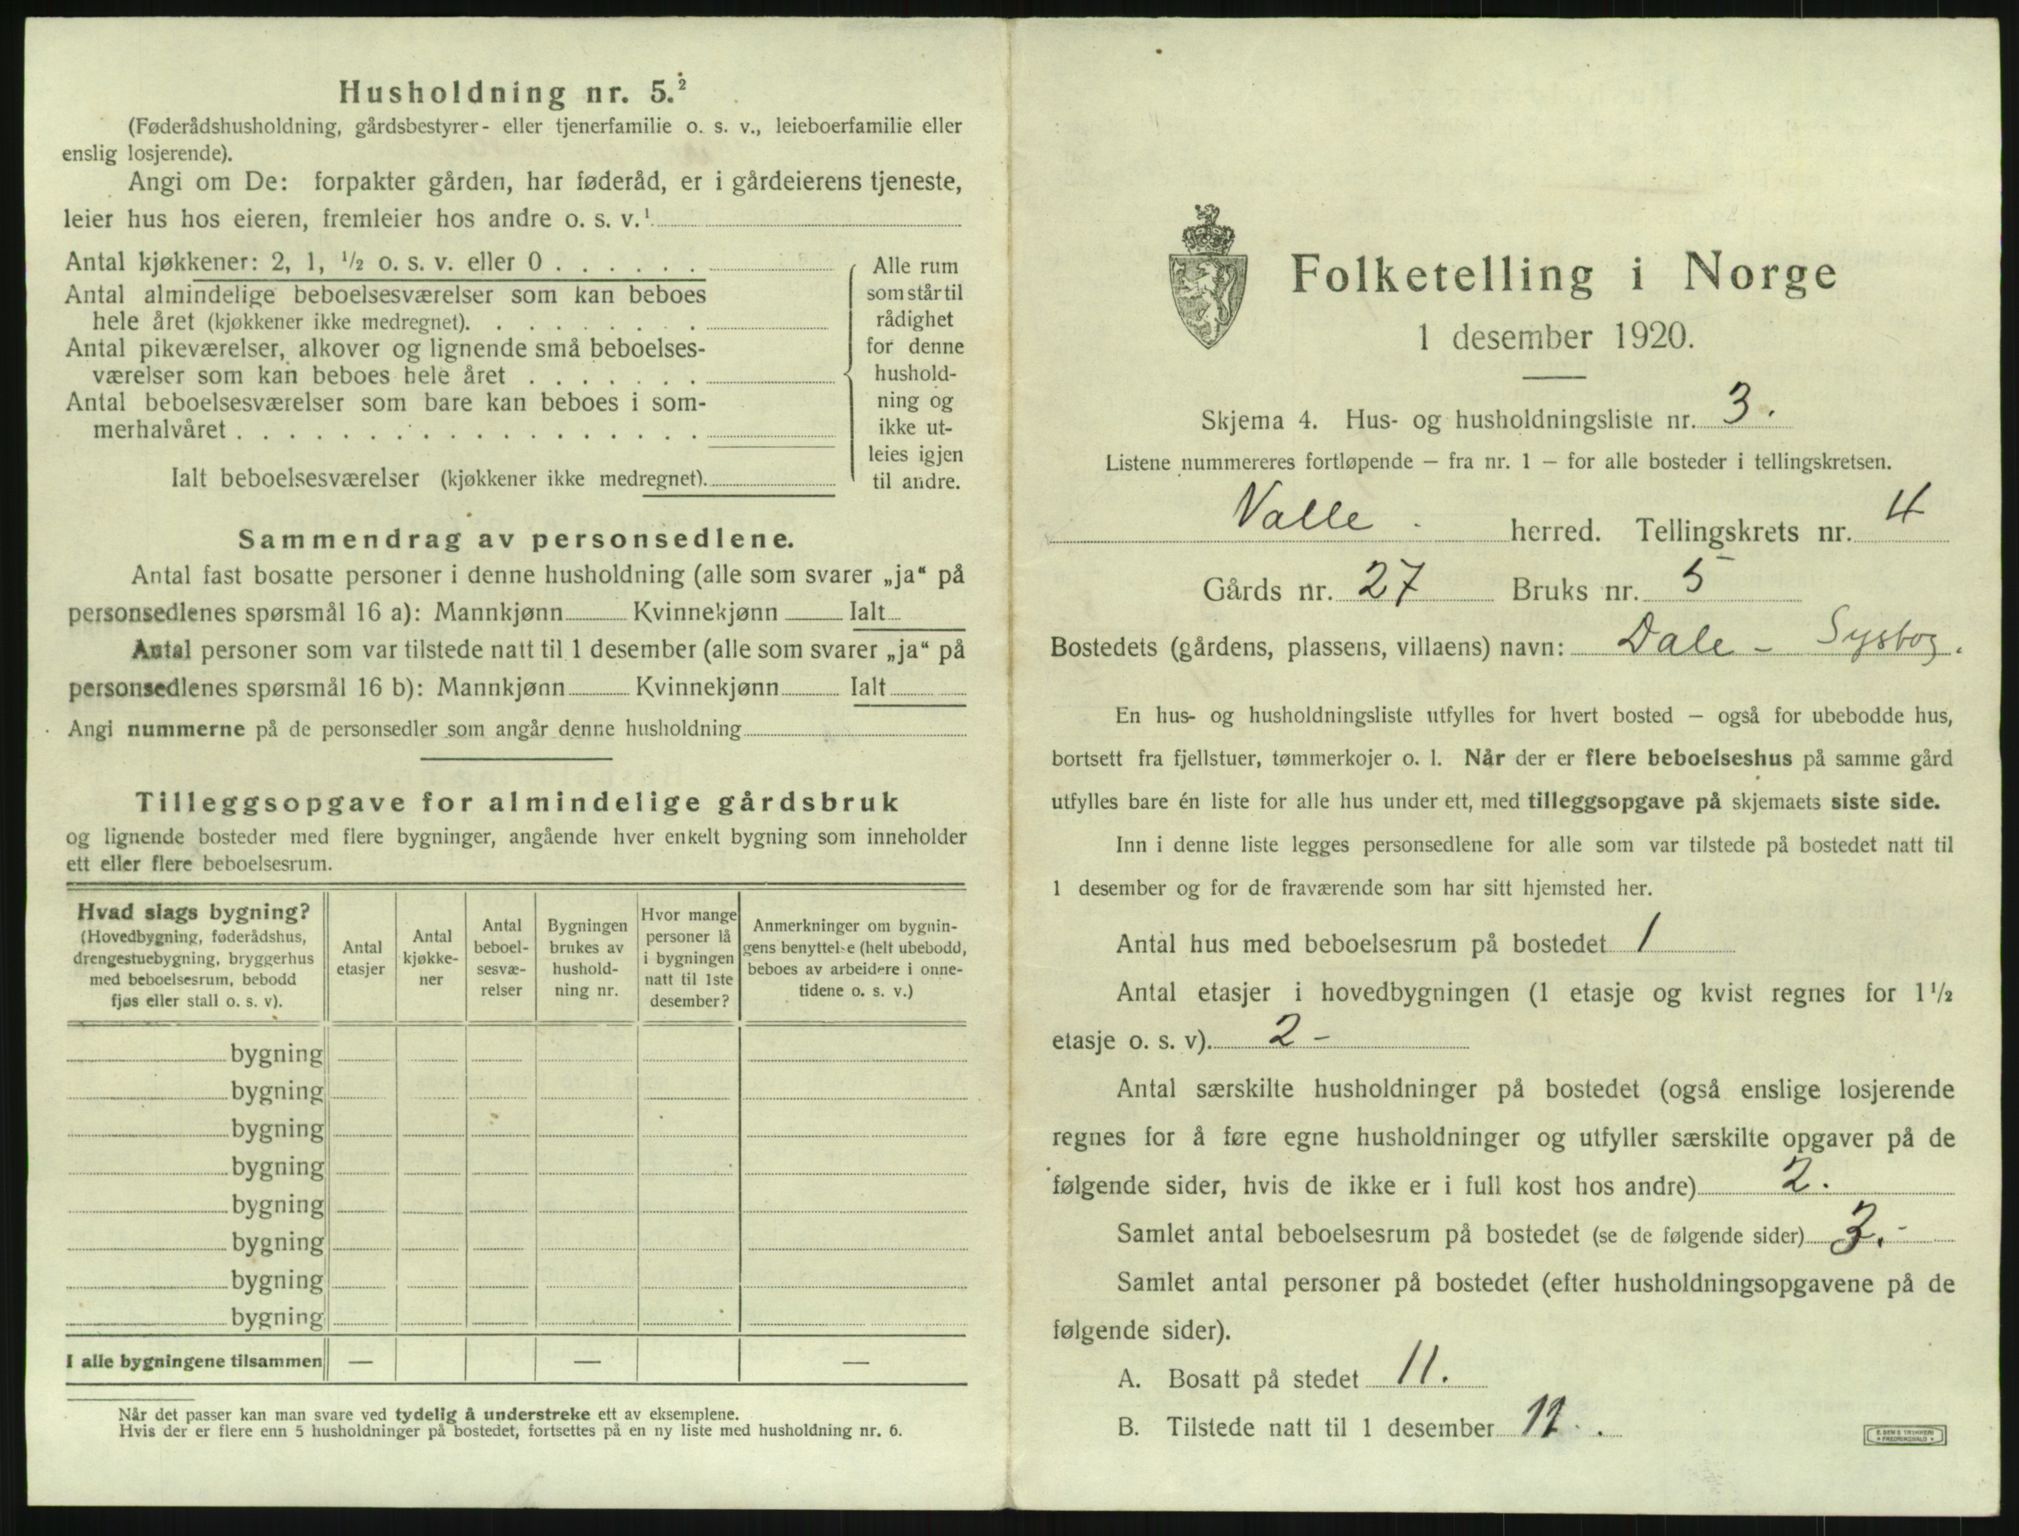 Husholdning nr. 5.²
(Føderådshusholdning, gårdsbestyrer- eller tjenerfamilie o. s. v., leieboerfamilie eller
enslig losjerende).
Angi om De: forpakter gården, har føderåd, er i gårdeierens tjeneste,
leier hus hos eieren, fremleier hos andre o. s. v.¹
Antal kjøkkener: 2, 1, ½ o. s. v. eller 0 . . . . . .
Antal almindelige beboelsesværelser som kan beboes
hele året (kjøkkener ikke medregnet). . . . . . . . .
Antal pikeværelser, alkover og lignende små beboelses-
værelser som kan beboes hele året . . . . . . .
Antal beboelsesværelser som bare kan beboes i som-
merhalvåret . . . . . . . . . . . . . . . . . .
Ialt beboelsesværelser (kjøkkener ikke medregnet).
Alle rum
som står til
rådighet
for denne
hushold-
ning og
ikke ut-
leies igjen
til andre.
Sammendrag av personsedlene.
Antal fast bosatte personer i denne husholdning (alle som svarer „ja“ på
personsedlenes spørsmål 16 a): Mannkjønn Kvinnekjønn Ialt
Antal personer som var tilstede natt til 1 desember (alle som svarer „ja“ på
personsedlenes spørsmål 16 b): Mannkjønn Kvinnekjønn Ialt
Angi nummerne på de personsedler som angår denne husholdning
Tilleggsopgave for almindelige gårdsbruk
og lignende bosteder med flere bygninger, angående hver enkelt bygning som inneholder
ett eller flere beboelsesrum.
Hvad slags bygning?
(Hovedbygning, føderådshus,
drengestuebygning, bryggerhus
med beboelsesrum, bebodd
fjøs eller stall o. s. v).
Antal
etasjer
Antal
kjøkke-
ner
Antal
beboel-
sesvæ-
relser
Bygningen
brukes av
hushold-
ning nr.
Hvor mange
personer lå
i bygningen
natt til 1ste
desember?
Anmerkninger om bygnin-
gens benyttelse (helt ubebodd,
beboes av arbeidere i onne-
tidene o. s. v.)
bygning
bygning
bygning
bygning
bygning
bygning
bygning
bygning
I alle bygningene tilsammen — — —
Når det passer kan man svare ved tydelig å understreke ett av eksemplene.
Hvis der er flere enn 5 husholdninger på bostedet, fortsettes på en ny liste med husholdning nr. 6.
Folketelling i Norge
1 desember 1920.
Skjema 4. Hus- og husholdningsliste nr. 3.
Listene nummereres fortløpende – fra nr. 1 – for alle bosteder i tellingskretsen.
Valle. herred. Tellingskrets nr. 4
Gårds nr. 27 Bruks nr. 5
Bostedets (gårdens, plassens, villaens) navn: Dale – Sysbog.
En hus- og husholdningsliste utfylles for hvert bosted – også for ubebodde hus,
bortsett fra fjellstuer, tømmerkojer o. l. Når der er flere beboelseshus på samme gård
utfylles bare én liste for alle hus under ett, med tilleggsopgave på skjemaets siste side.
Inn i denne liste legges personsedlene for alle som var tilstede på bostedet natt til
1 desember og for de fraværende som har sitt hjemsted her.
Antal hus med beboelsesrum på bostedet 1
Antal etasjer i hovedbygningen (1 etasje og kvist regnes for 1½
etasje o. s. v). 2 –
Antal særskilte husholdninger på bostedet (også enslige losjerende
regnes for å føre egne husholdninger og utfyller særskilte opgaver på de
følgende sider, hvis de ikke er i full kost hos andre) 2.
Samlet antal beboelsesrum på bostedet (se de følgende sider) 3. –
Samlet antal personer på bostedet (efter husholdningsopgavene på de
følgende sider).
A. Bosatt på stedet 11.
B. Tilstede natt til 1 desember 11.